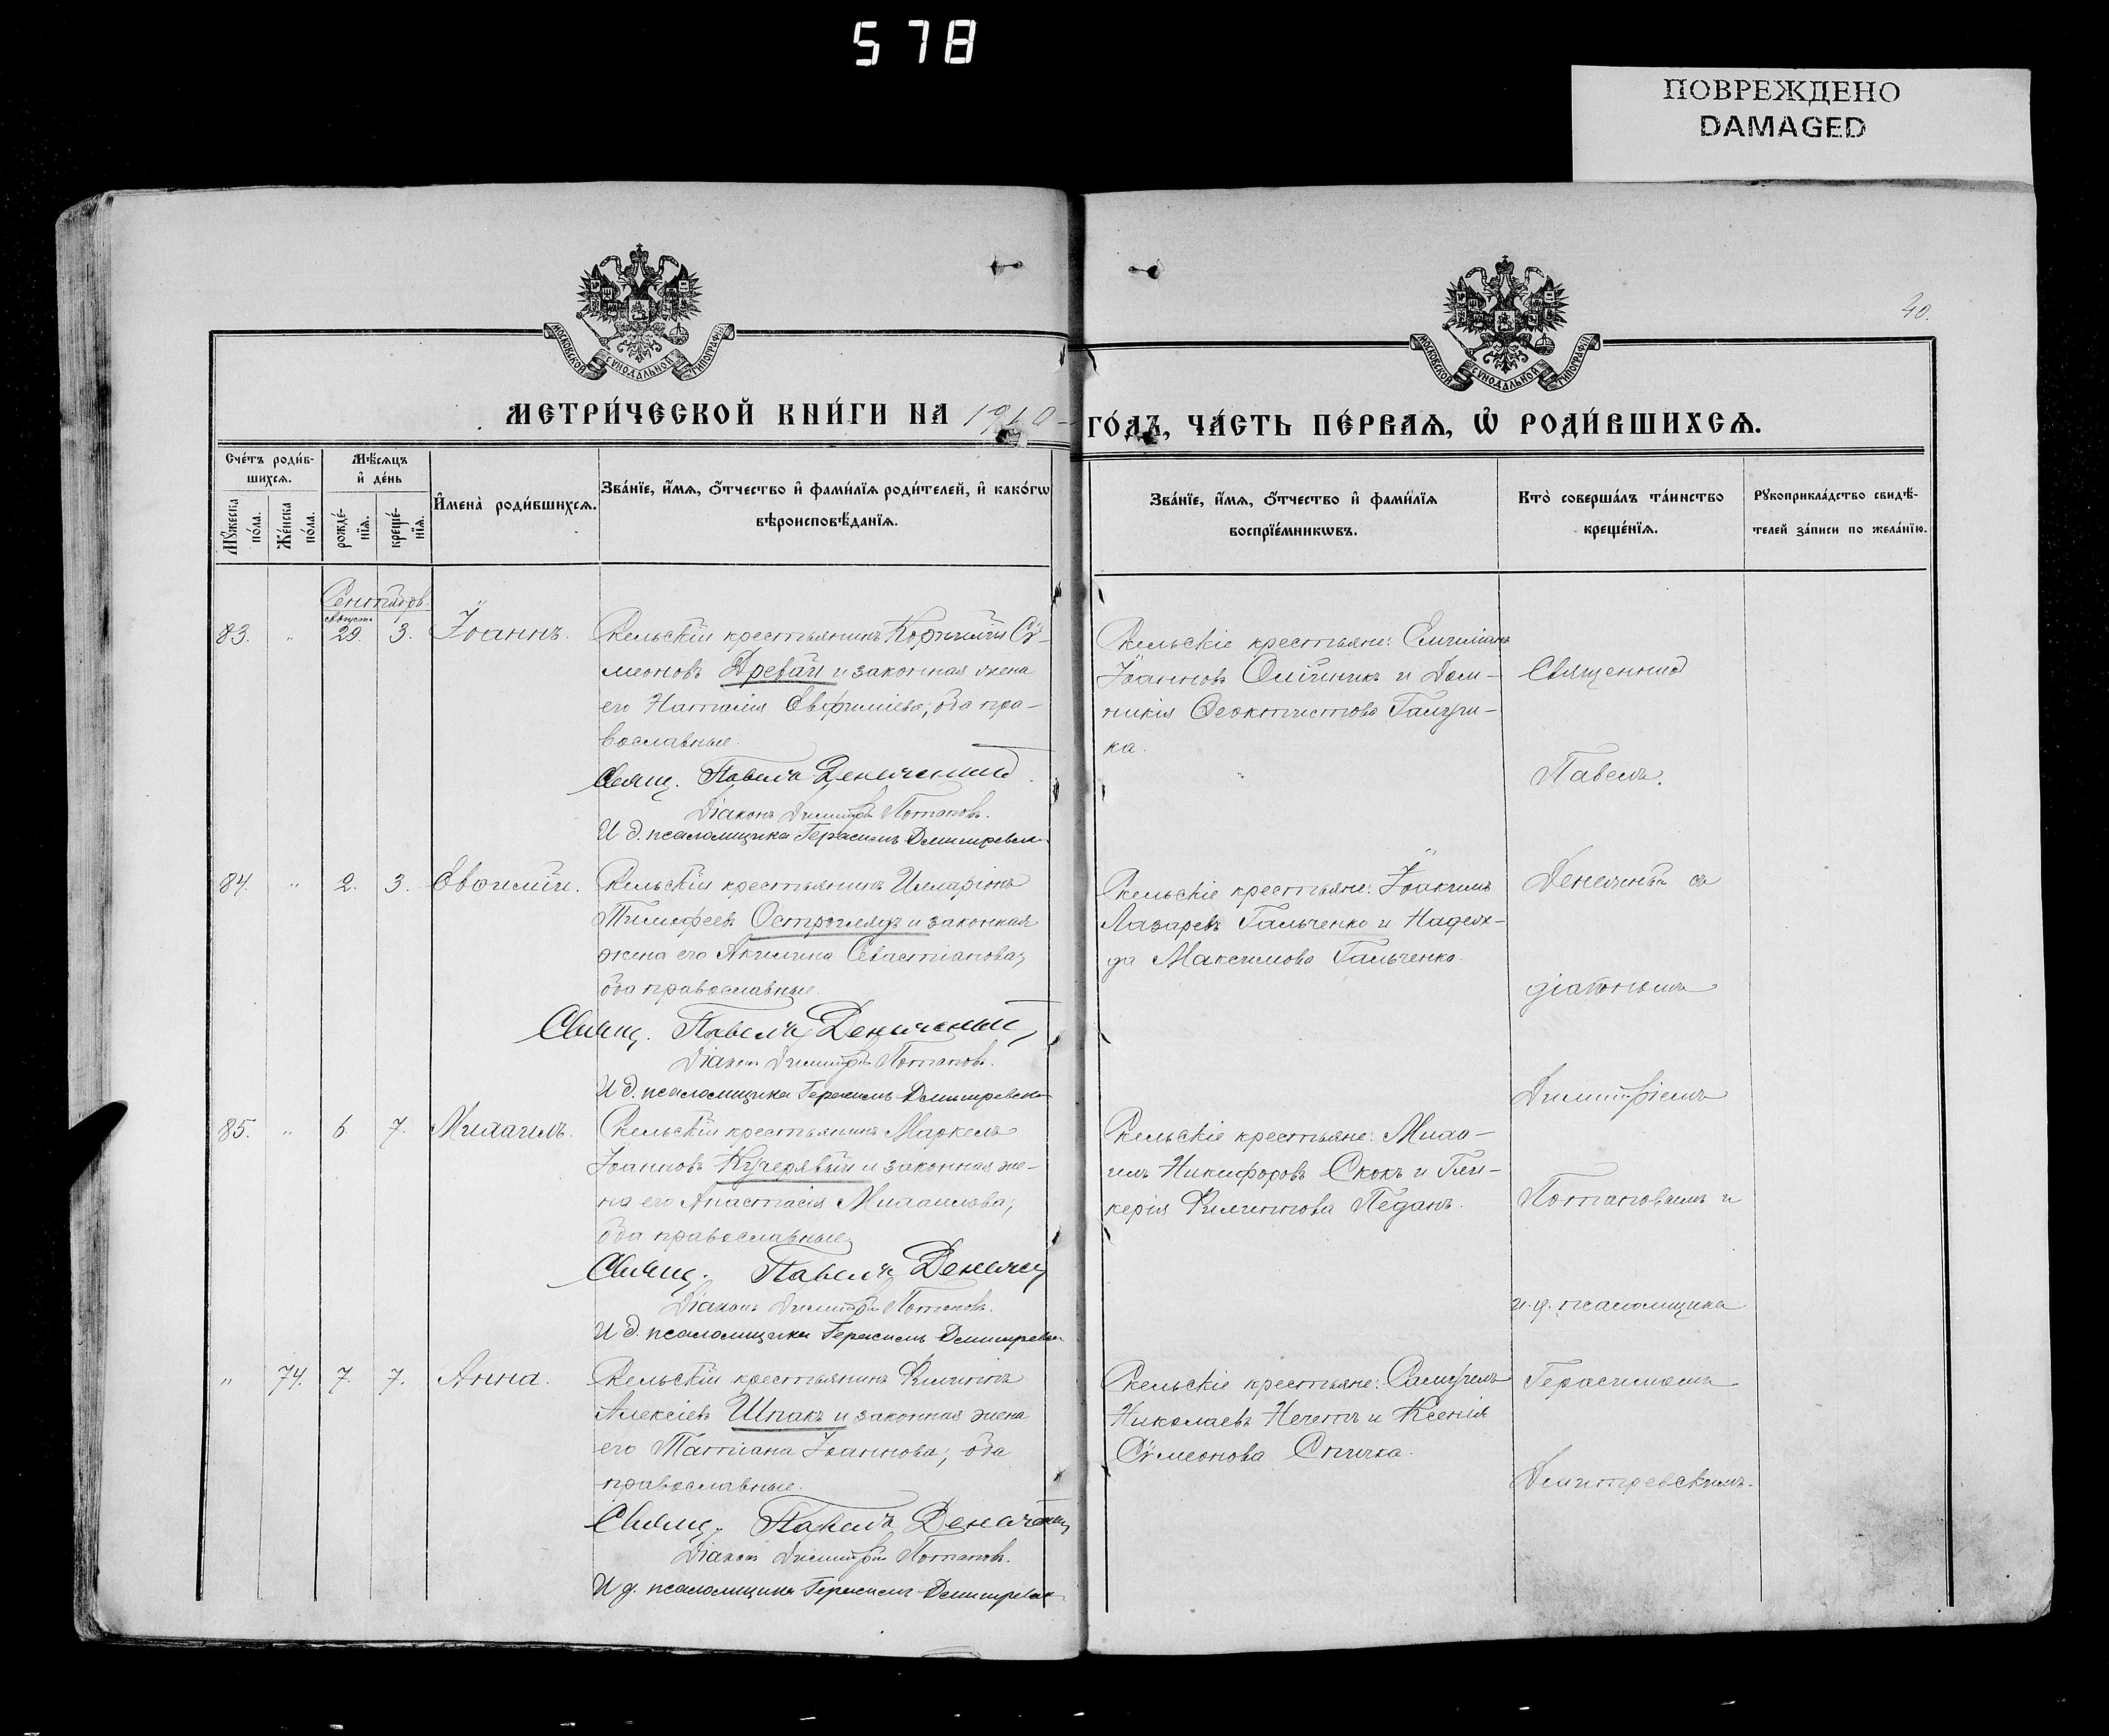 578
ПОВРЕЖДЕНО
DAMAGED
МОСКОВСКОЙ СУНОДАЛЬНОЙ ТИПОГРАФІИ
МОСКОВСКОЙ СУНОДАЛЬНОЙ ТИПОГРАФІИ
40.
МЕТРИ́ЧЕСКОЙ КНИ́ГИ НА 1910
ГО́ДЪ, ЧА́СТЬ ПЕ́РВАѦ, Ѡ҆ РОДИ́ВШИХСѦ.
Сче́тъ роди́в-
шихсѧ.
Мꙋ́жеска
по́ла.
Же́нска
по́ла.
Мѣ́сѧцъ
и҆ де́нь
рожде́-
нїѧ.
креще́-
нїѧ.
И҆мена̀ роди́вшихсѧ.
Зва́нїе, и҆́мѧ, ѻ҆́тчество и҆ фами́лїѧ роди́телей, и҆ како́гѡ
вѣроисповѣ́данїѧ.
Зва́нїе, и҆́мѧ, ѻ҆́тчество и҆ фами́лїѧ
воспрїе́мникѡвъ.
Кто̀ соверша́лъ та́инство
креще́нїѧ.
Рꙋкоприкла́дство свидѣ́-
телей за́писи по жела́нїю.
Сентябрь
Августъ
83. " 29. 3. Іоаннъ.
крестьянинъ Корнилій Сѵ-
меоновъ Древаль и законная жена
его Наталія Евфиміева; оба пра-
вославные.
Свящ. Павелъ
Діаконъ Димитрій Потаповъ.
И д. псаломщика Герасимъ
крестьяне: Емиліанъ
Іоанновъ Олійникъ и Дом-
никія Ѳеоктистова Галуш-
ка.
Священникъ
Павелъ.
84. " 2. 3. Евѳимій.
крестьянинъ Иларіонъ
Тимоѳеевъ Остроглядъ и законная
жена его Акилина Севастіанова;
оба православные.
Свящ. Павелъ
Діаконъ Димитрій Потаповъ.
И д. псаломщика Герасимъ
крестьяне: Іоакимъ
Лазаревъ Гальченко и Надеж-
да Максимова Гальченко.
съ
діакономъ
Димитріемъ
85. " 6. 7. Михаилъ.
крестьянинъ Маркелъ
Іоанновъ Кучерявый и законная же-
на его Анастасія Михаилова;
оба православные.
Свящ. Павелъ
Діаконъ Димитрій Потаповъ.
И д. псаломщика Герасимъ
крестьяне: Миха-
илъ Никифоровъ Скокъ и Гли-
керія Филиппова Педань.
Потаповымъ и
и. д. псаломщика
" 74. 7. 7. Анна.
крестьянинъ Филиппъ
Алексіевъ Шпакъ и законная жена
его Татіана Іоаннова; оба
православные.
Свящ. Павелъ
Діаконъ Димитрій Потаповъ.
И д. псаломщика Герасимъ
крестьяне: Самуилъ
Николаевъ и Ксенія
Сѵмеонова Спичка.
Герасимомъ
Дмитревскимъ.